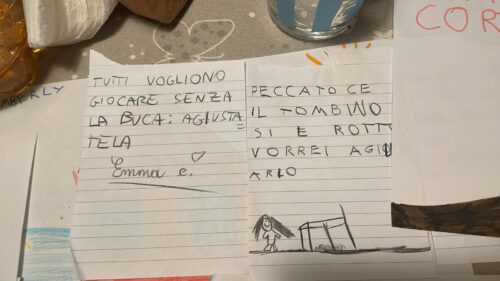 TUTTI VOGLIONO
GIOCARE SENZA
LA BUCA: AGIUSTA=
TELA
Emma e.
PECCATO CE
IL TOMBINO
SI E ROTT
VORREI AGIU
ARLO
MBERLY
COR